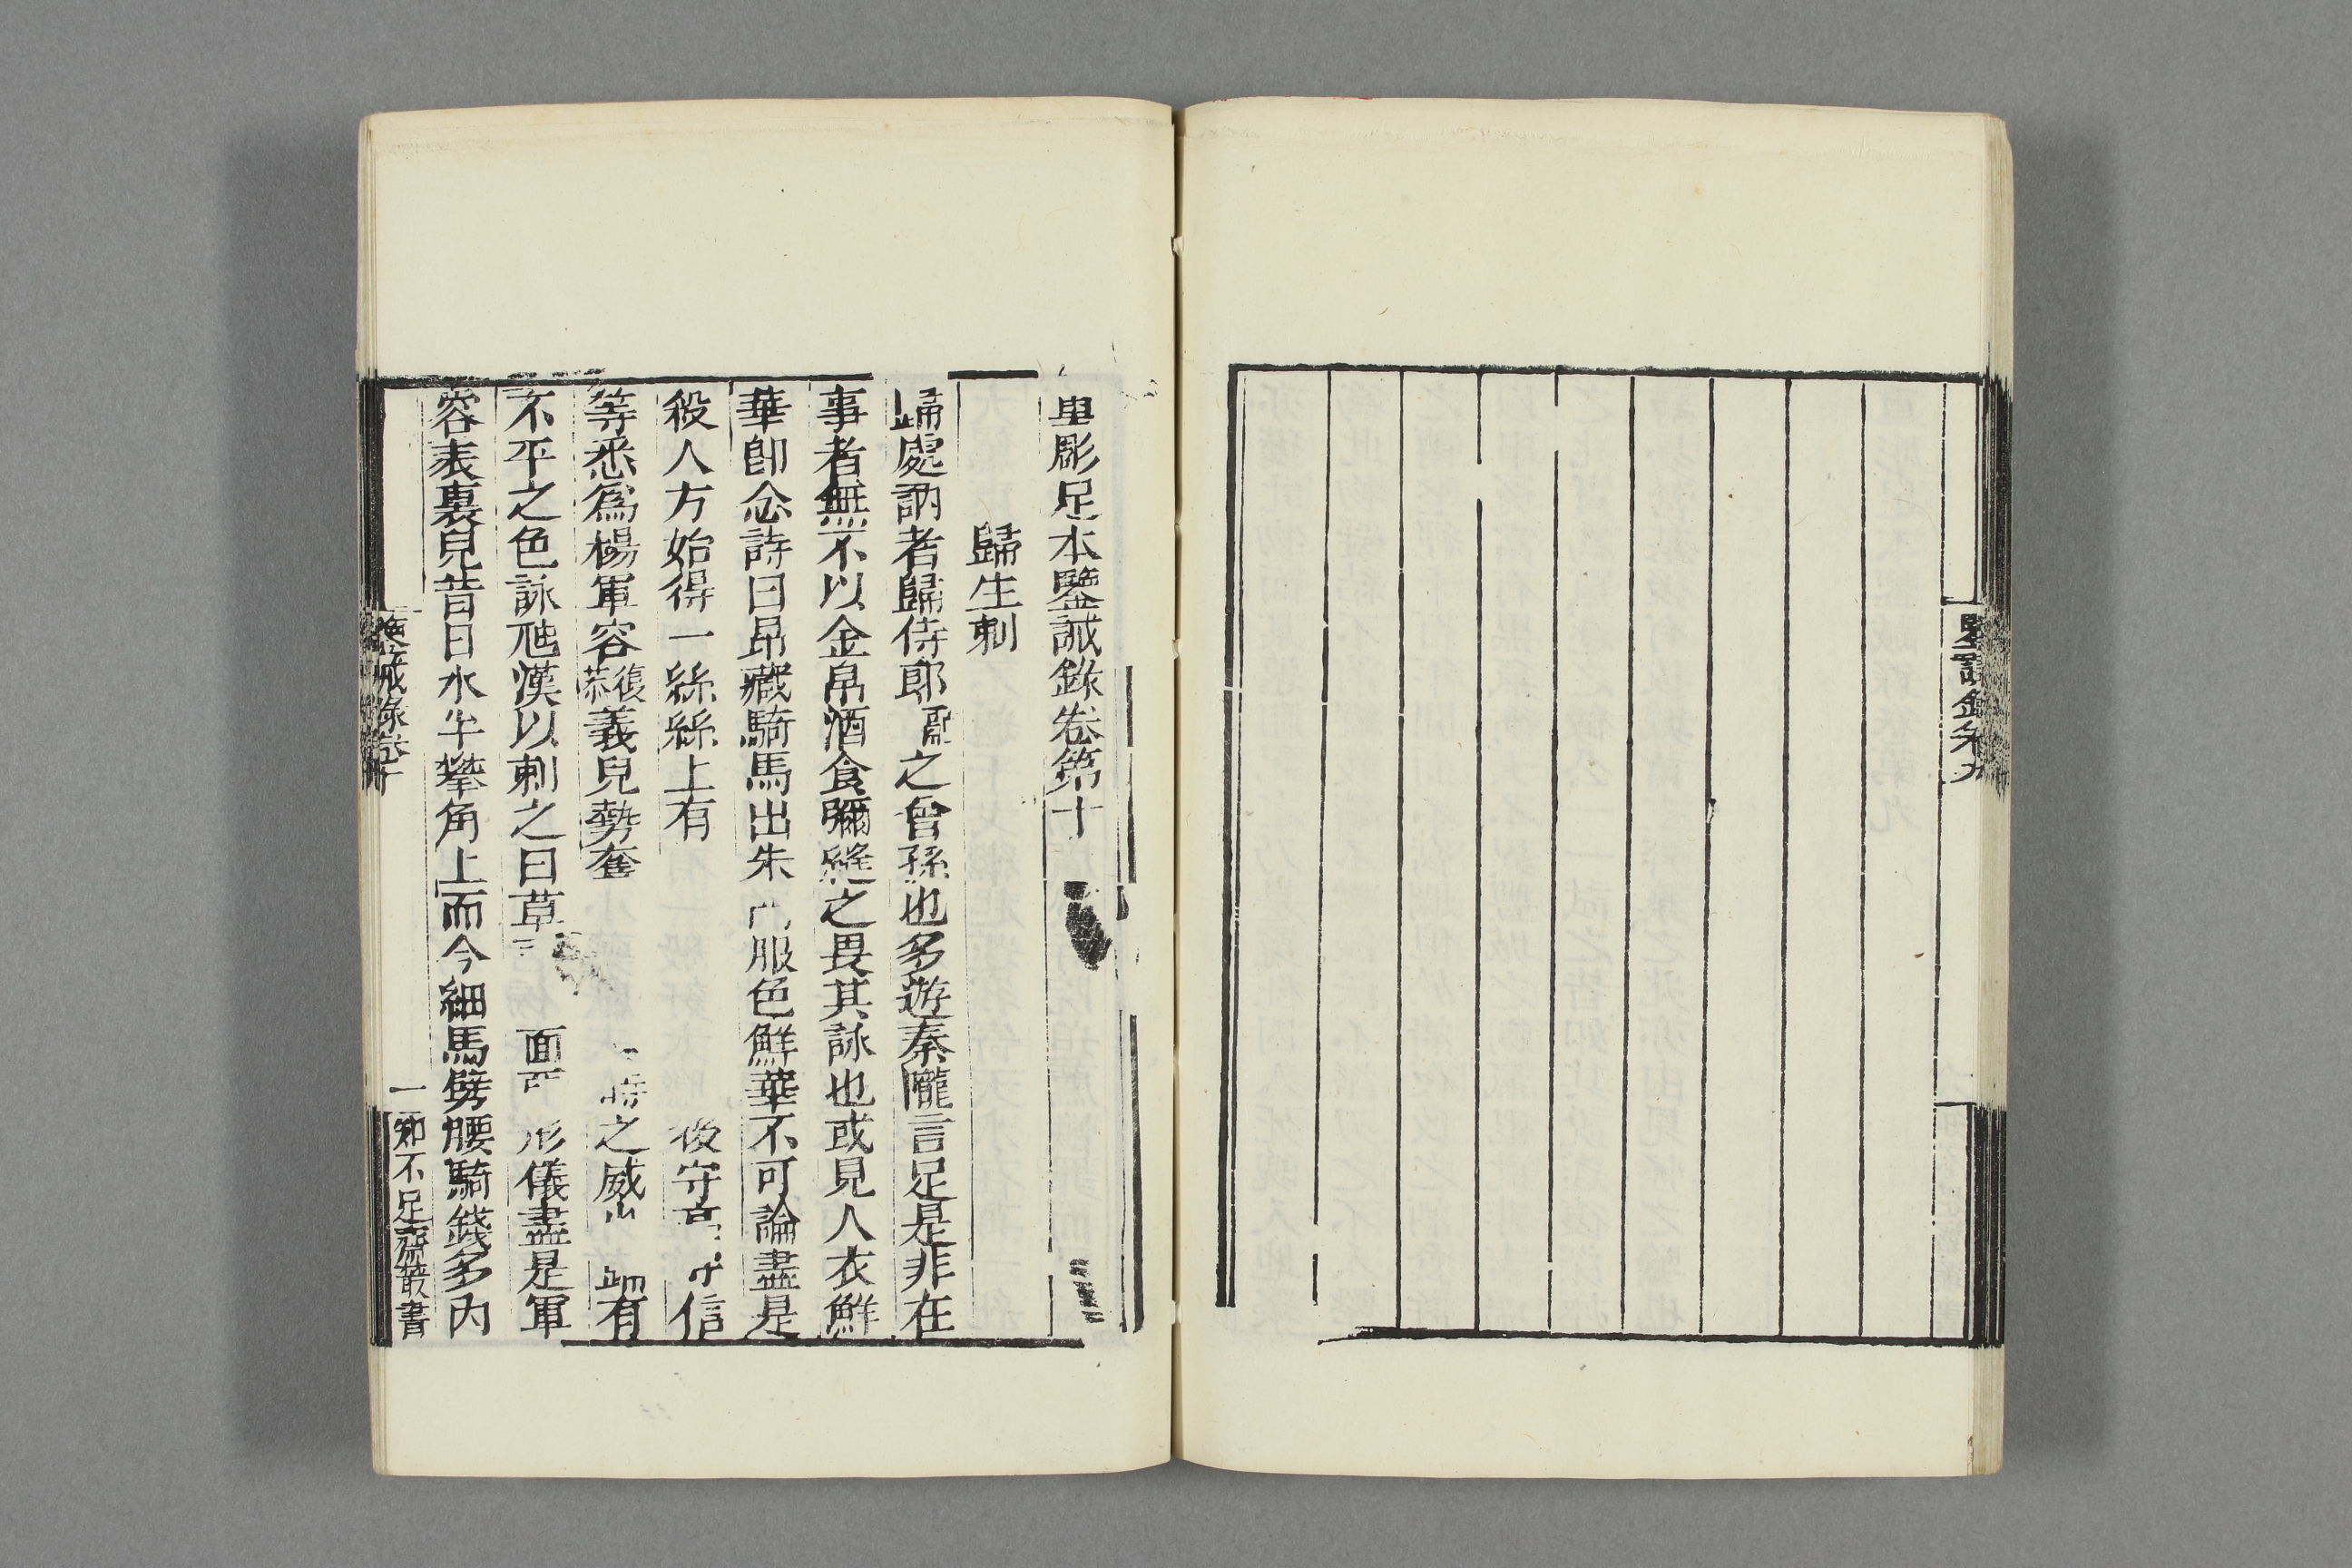 鑒誡錄卷九
重彫足本鑒誡錄卷第十
歸生刺
歸處訥者歸侍郎融之曾孫也多遊秦隴言足是非在
事者無不以金帛酒食彌縫之畏其詠也或見人衣鮮
華卽念詩曰昂藏騎馬出朱門服色鮮華不可論盡是
役人方始得一絲絲上有 後守 信
等悉爲楊軍容復恭義兒勢奪 時之威 歸有
不平之色詠𠒎漢以刺之曰草 面 形儀盡是軍
容表裏兒昔日水牛攀角上而今細馬劈腰騎錢多內
鑒誡錄卷十
一
知不足齋叢書